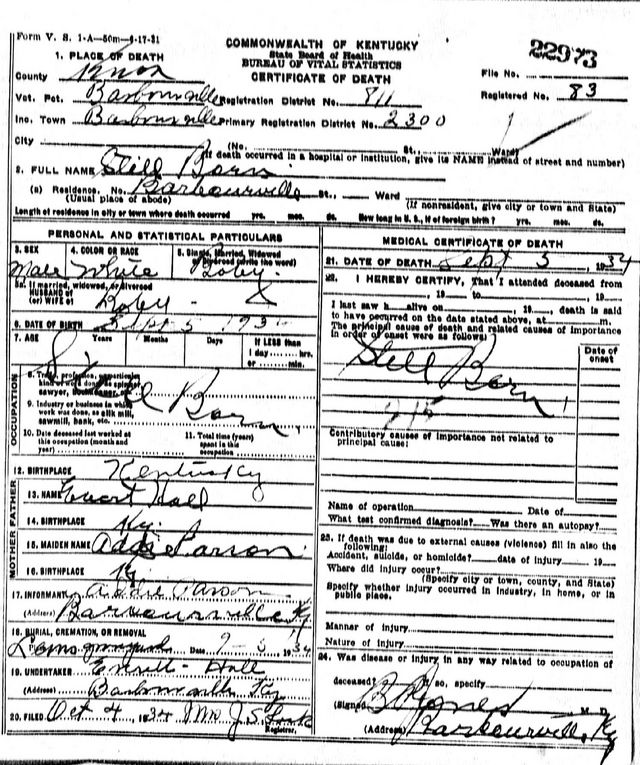 Form V. S. 1-A—50m—4-17-31
COMMONWEALTH OF KENTUCKY
State Board of Health
BUREAU OF VITAL STATISTICS
CERTIFICATE OF DEATH
22973
File No.
Registered No. 83
1. PLACE OF DEATH
County Knox
Vot. Pct. Barbourville Registration District No. 811
Inc. Town Barbourville Primary Registration District No. 2300
City (No. St., Ward)
(If death occurred in a hospital or institution, give its NAME instead of street and number)
2. FULL NAME Still Born
(a) Residence. No. Barbourville St., Ward
(Usual place of abode) (If nonresident, give city or town and State)
Length of residence in city or town where death occurred yrs. mos. ds. How long in U. S., if of foreign birth? yrs. mos. ds.
PERSONAL AND STATISTICAL PARTICULARS
3. SEX 4. COLOR OR RACE 5. Single, Married, Widowed or Divorced (write the word)
Male White Boby
5a. If married, widowed, or divorced
HUSBAND of
(or) WIFE of Boby
6. DATE OF BIRTH Sept 5 1934
7. AGE Years Months Days If LESS than
1 day hrs.
or min.
8. Trade, profession, or particular
kind of work done, as spinner,
sawyer, bookkeeper, etc.
Still Born
9. Industry or business in which
work was done, as silk mill,
sawmill, bank, etc.
10. Date deceased last worked at
this occupation (month and
year)
11. Total time (years)
spent in this
occupation
OCCUPATION
12. BIRTHPLACE Kentucky
FATHER
13. NAME Evert Hall
14. BIRTHPLACE Ky.
MOTHER
15. MAIDEN NAME Addie Parson
16. BIRTHPLACE Ky
17. INFORMANT Addie Parson
(Address) Barbourville Ky
18. BURIAL, CREMATION, OR REMOVAL
Date 9-5 1934
19. UNDERTAKER Everett Hall
(Address) Barbourville Ky
20. FILED Oct 4, 1934 Mrs J. S.
Registrar.
MEDICAL CERTIFICATE OF DEATH
21. DATE OF DEATH Sept 5, 1934
22. I HEREBY CERTIFY, That I attended deceased from
, 19 to , 19
I last saw h alive on , 19 , death is said
to have occurred on the date stated above, at m.
The principal cause of death and related causes of importance
in order of onset were as follows:
Date of onset
Still Born
Contributory causes of importance not related to
principal cause:
Name of operation Date of
What test confirmed diagnosis? Was there an autopsy?
23. If death was due to external causes (violence) fill in also the
following:
Accident, suicide, or homicide? date of injury 19
Where did injury occur?
(Specify city or town, county, and State)
Specify whether injury occurred in industry, in home, or in
public place.
Manner of injury
Nature of injury
24. Was disease or injury in any way related to occupation of
deceased? If so, specify
(Signed) M. D.
(Address) Barbourville, Ky